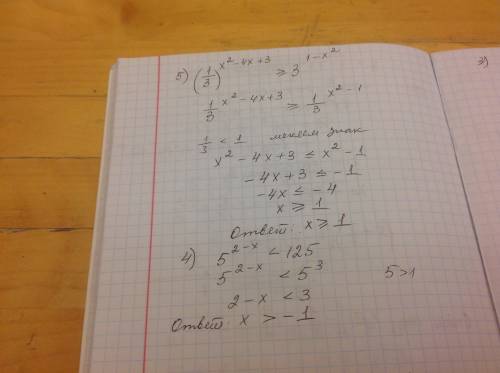 5) (1/3)^(x²-4x+3) ≥ 3^(1-x²)
1/3^(x²-4x+3) ≥ 1/3^(x²-1)
1/3 < 1 меняем знак
x² - 4x + 3 ≤ x² - 1
-4x + 3 ≤ -1
-4x ≤ -4
x ≥ 1
Ответ: x ≥ 1
4) 5^(2-x) < 125
5^(2-x) < 5³ 5>1
2 - x < 3
Ответ: x > -1
3)